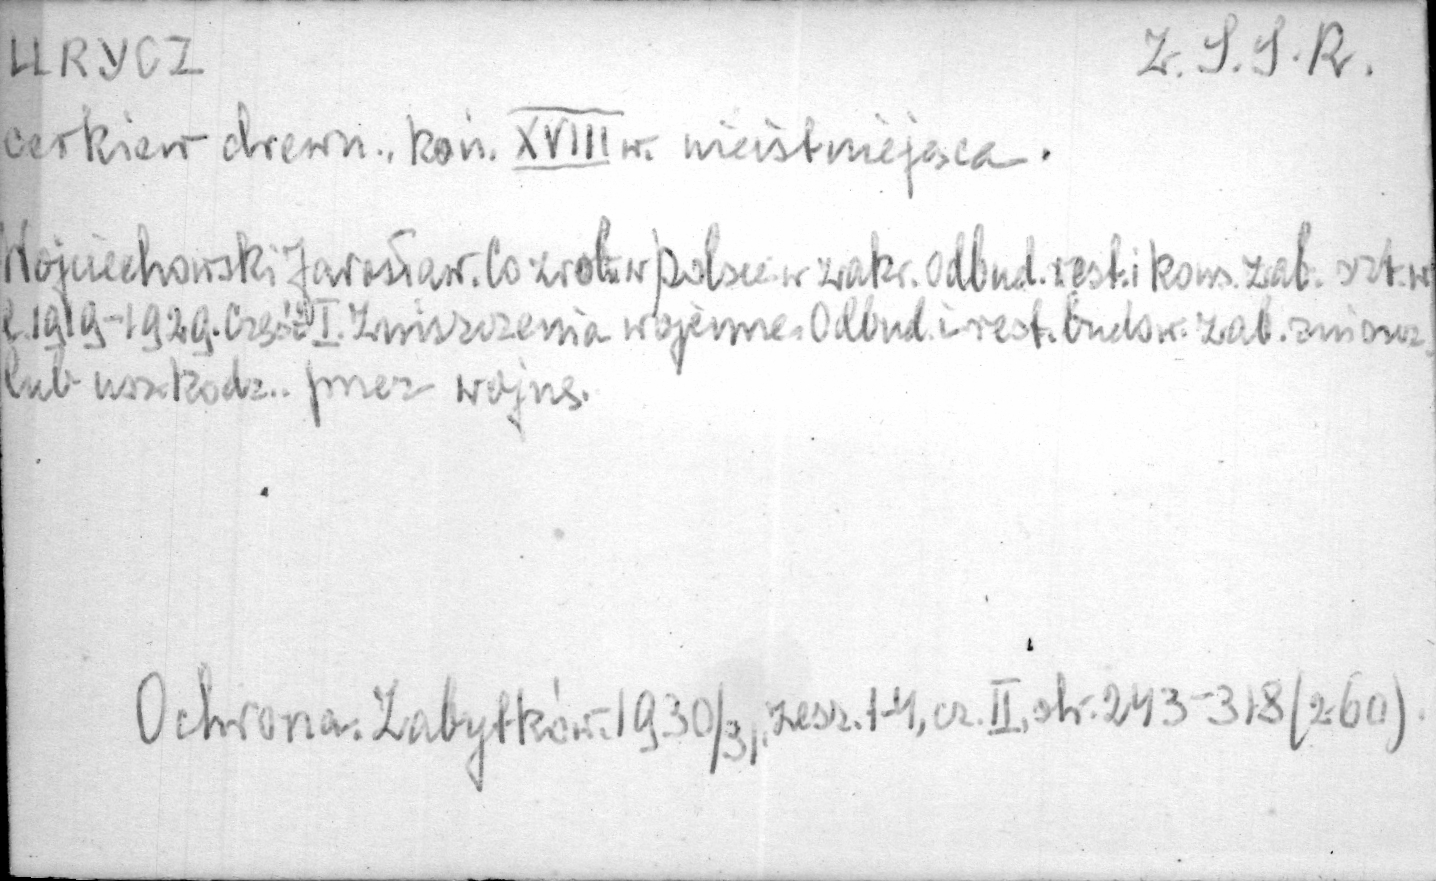 URYCZ Z.S.S.R.
cerkiew drewn., koń. XVIII w. nieistniejąca.
Wojciechowski Jarosław. Co zrob. w Polsce w zakr. odbud. rest. i kons. zab. szt. w
l. 1919-1929. Część I. Zniszczenia wojenne. Odbud. i rest. budow. zab. zniszcz.
lub uszkodz.. przez wojnę.
Ochrona Zabytków. 1930/31, zesz. 1-4, cz. II, str. 243-318 (260).